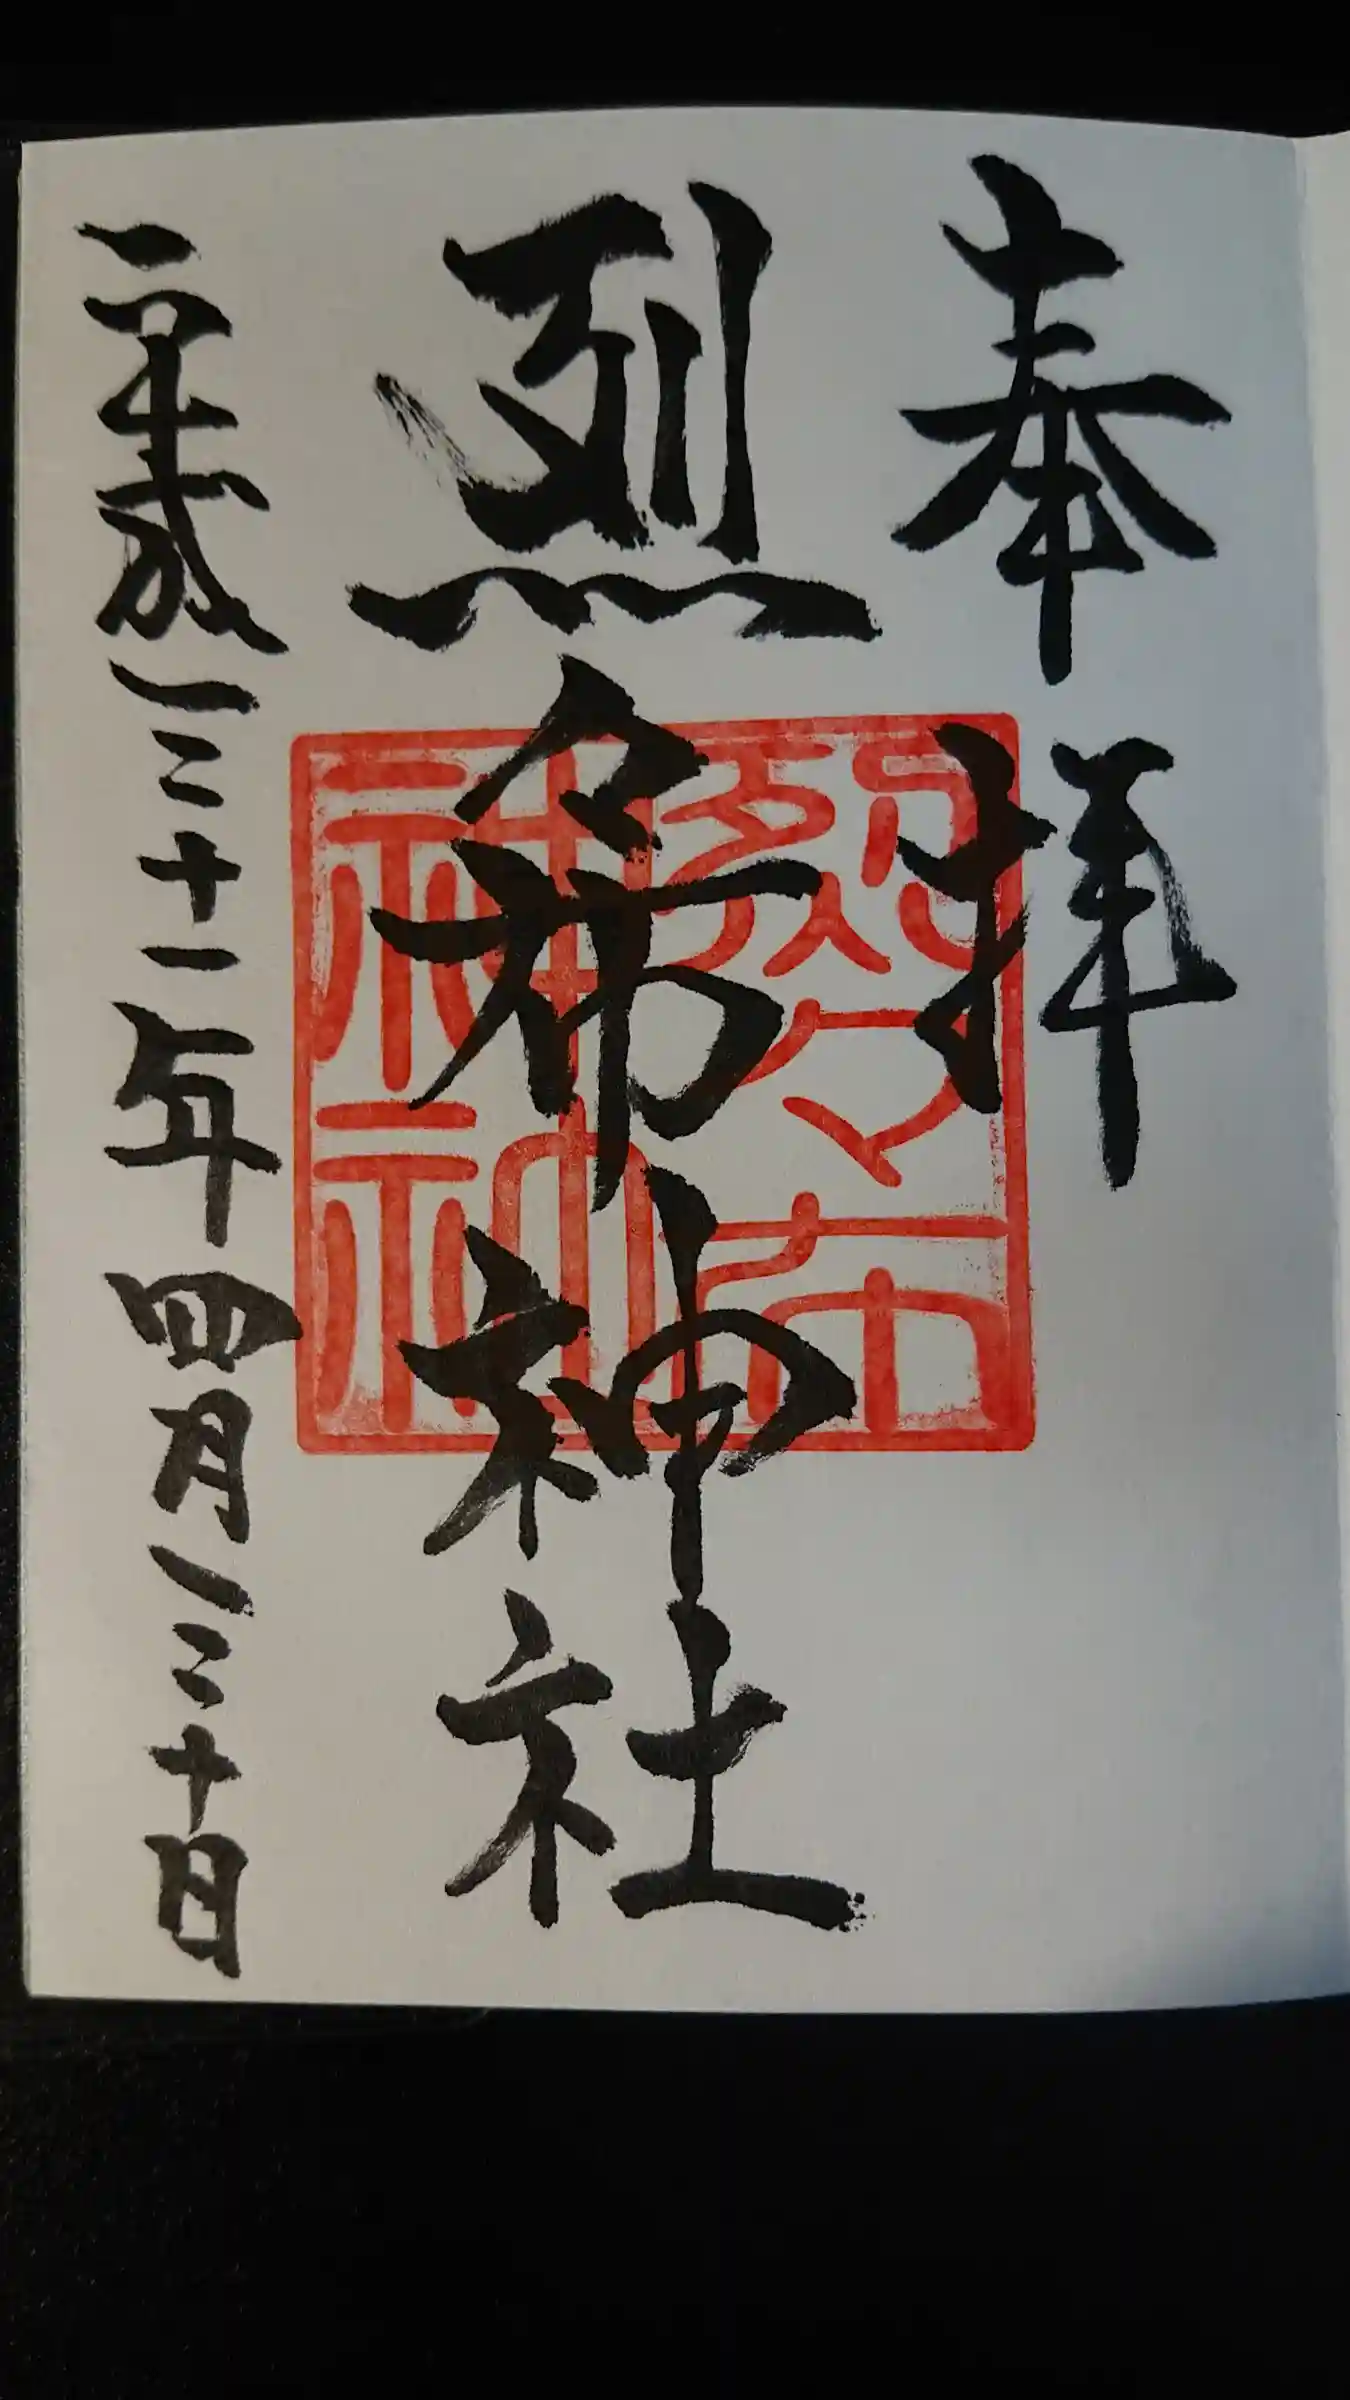 奉拝
烈々布神社
平成三十一年四月三十日
烈々布